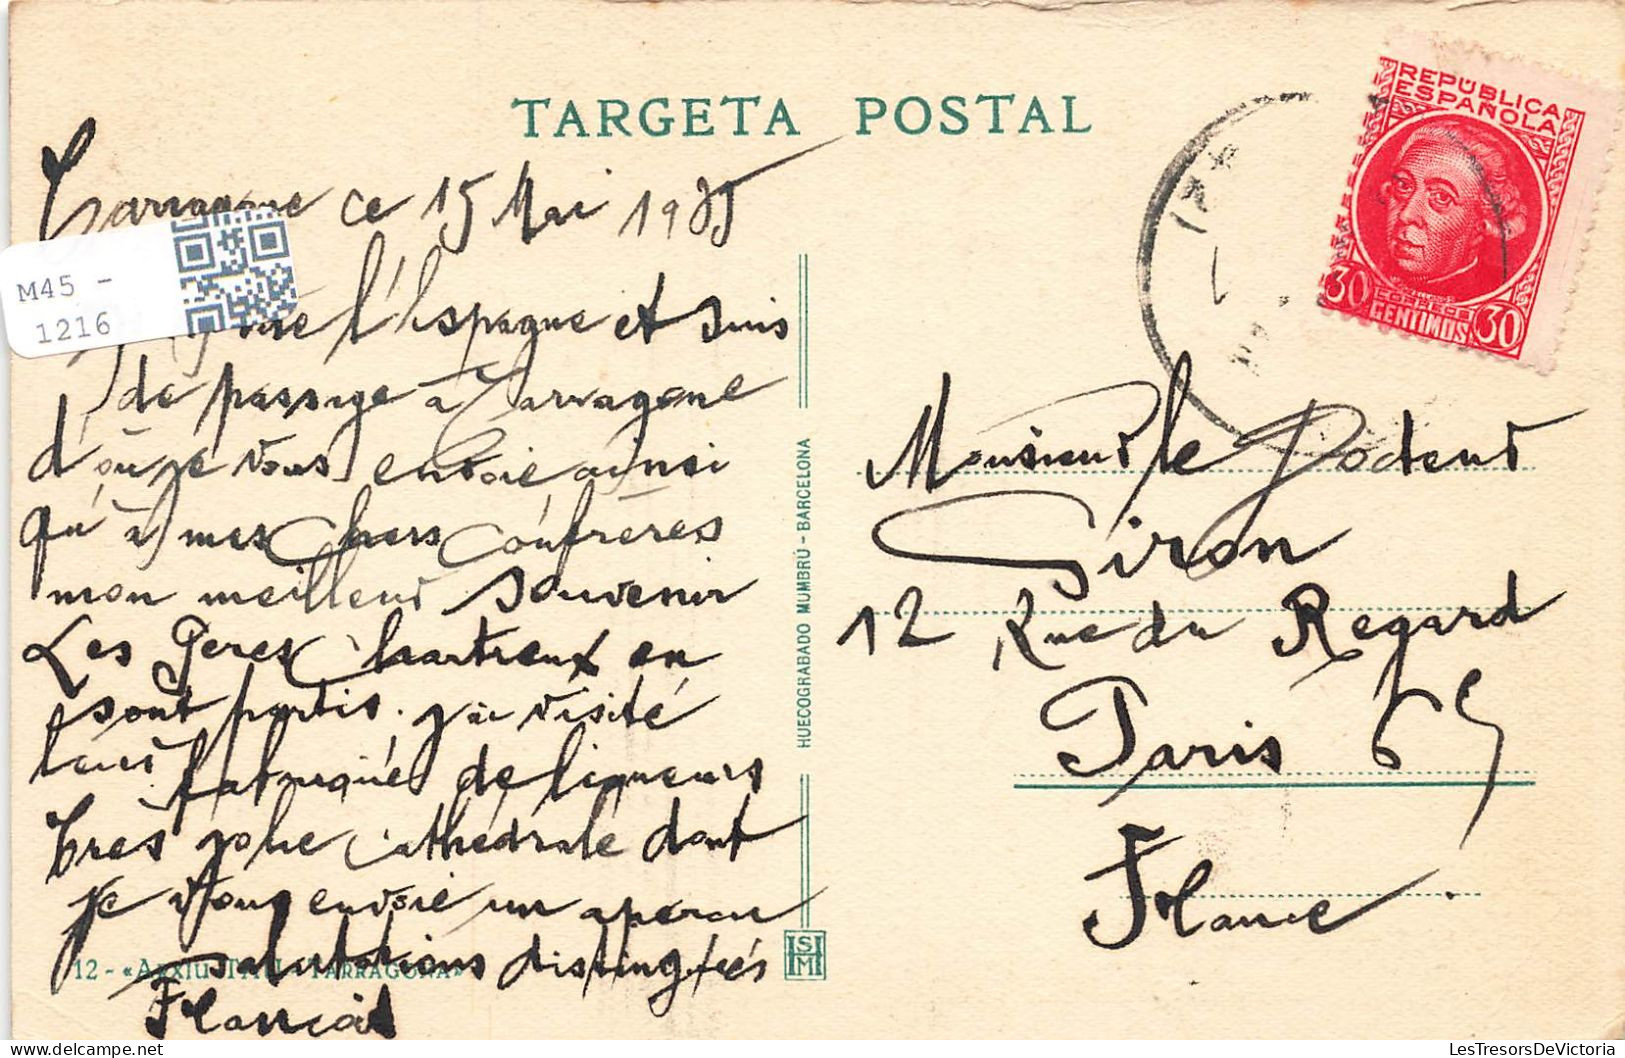 TARGETA POSTAL
REPÚBLICA
ESPAÑOLA
CORREOS
30 CENTIMOS 30
Tarragone ce 15 Mai 1935
M45 -
1216
l'Espagne et suis
de passage à Tarragone
d'où je vous envoie ainsi
qu'à mes chers confrères
mon meilleur souvenir
Les Peres Chartreux en
sont partis. j'ai visité
leur fabrique de liqueurs
très jolie cathédrale dont
je vous envoie un apercu
salutations distinguées
12 - «Arxiu TARRAGONA»
HUECOGRABADO MUMBRÚ - BARCELONA
HSM
Monsieur le Docteur
Giron
12 Rue du Regard
Paris 6
France
LesTresorsDeVictoria.com